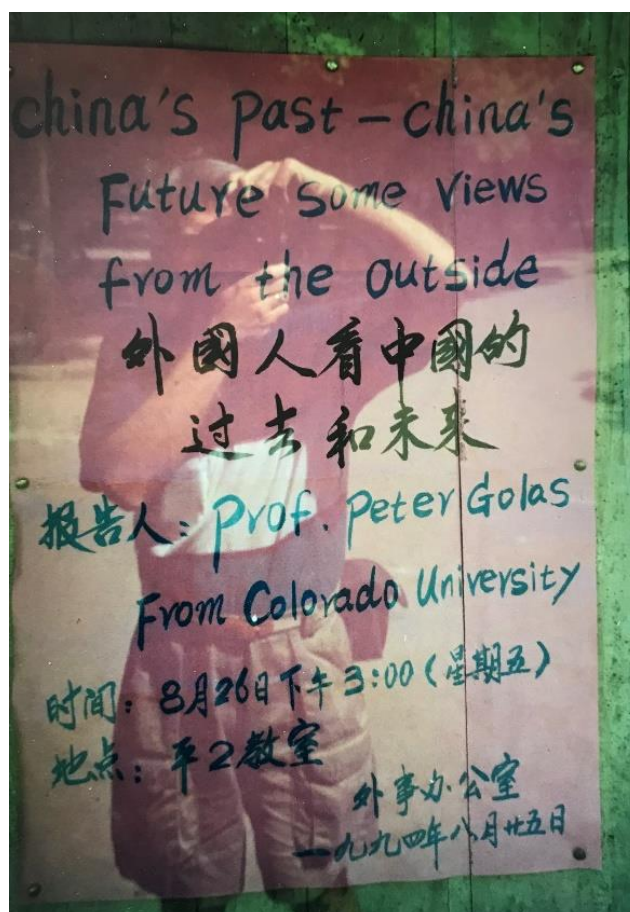 china's past – china's
Future some views
from the outside
外國人看中國的
过去和未来
报告人: Prof. Peter Golas
From Colorado University
时间: 8月26日下午3:00(星期五)
地点: 平2教室
外事办公室
一九九四年八月廿五日